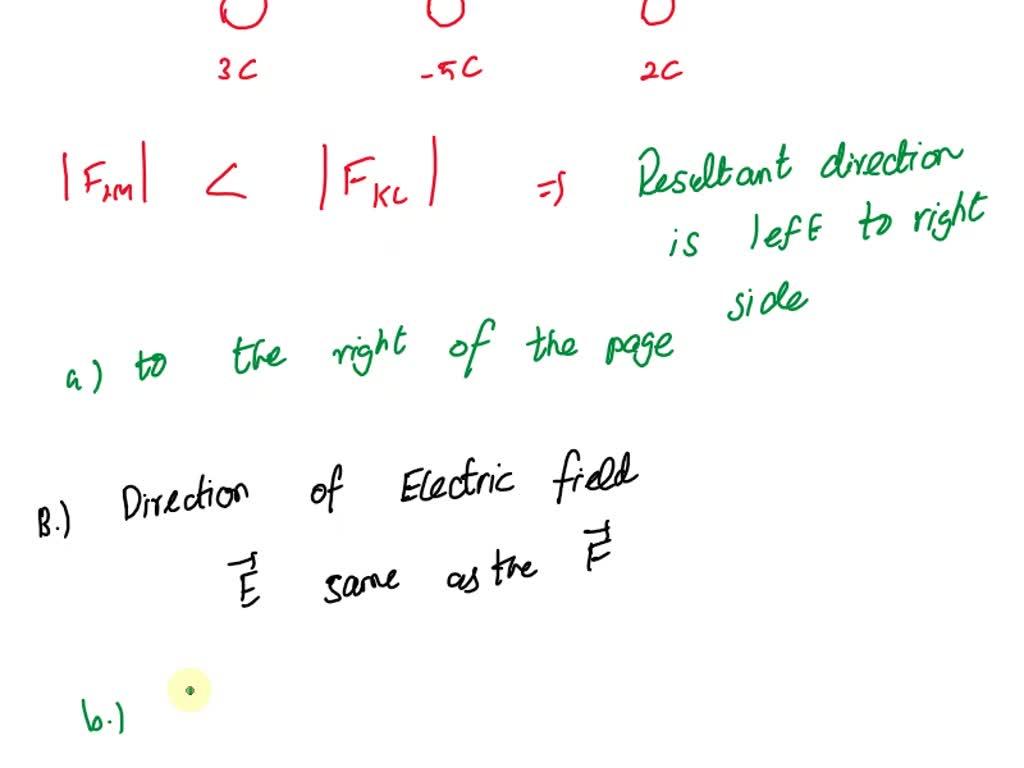 3C -5C 2C
|FLM| < |FKL| ⇒ Resultant direction
is left to right
side
a) to the right of the page
B.) Direction of Electric field
E⃗ same as the F⃗
b.)